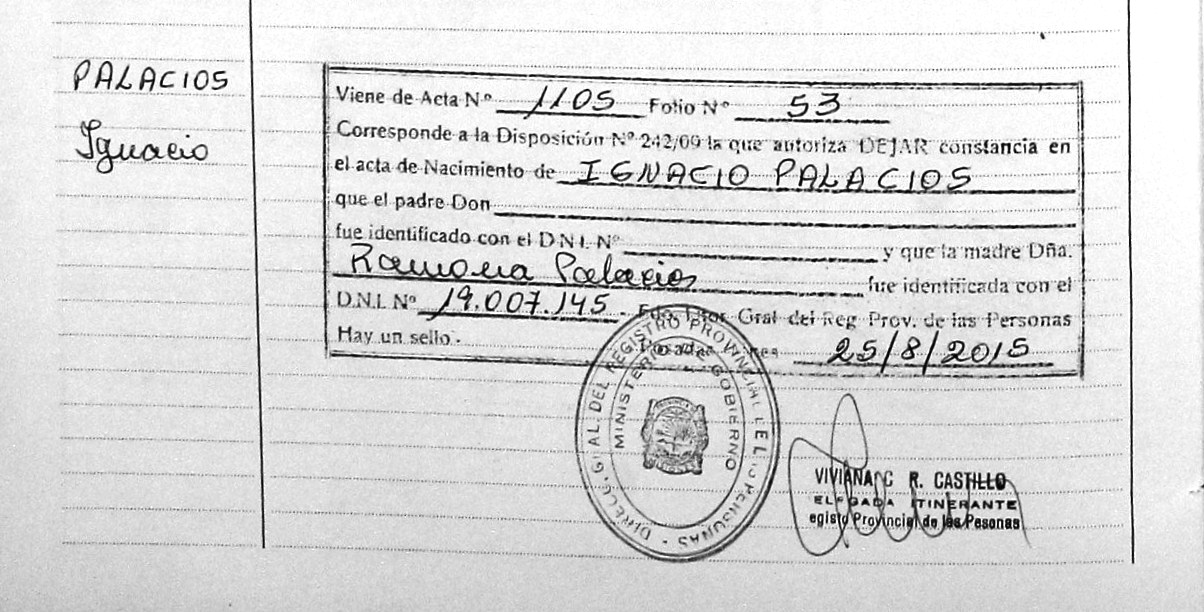 PALACIOS
Ignacio
Viene de Acta Nº 1105 Folio Nº 53
Corresponde a la Disposición Nº 242/09 la que autoriza DEJAR constancia en
el acta de Nacimiento de IGNACIO PALACIOS
que el padre Don
fue identificado con el D.N.I. Nº y que la madre Dña.
Ramona Palacios fue identificada con el
D.N.I. Nº 19.007.145. Fdo. Gral del Reg Prov. de las Personas
Hay un sello. 25/8/2015
DIRECC. GRAL. DEL REGISTRO PROVINCIAL DE LAS PERSONAS
MINISTERIO DE GOBIERNO
VIVIANA C R. CASTILLO
ELEGADA ITINERANTE
egisto Provincial de las Pesonas